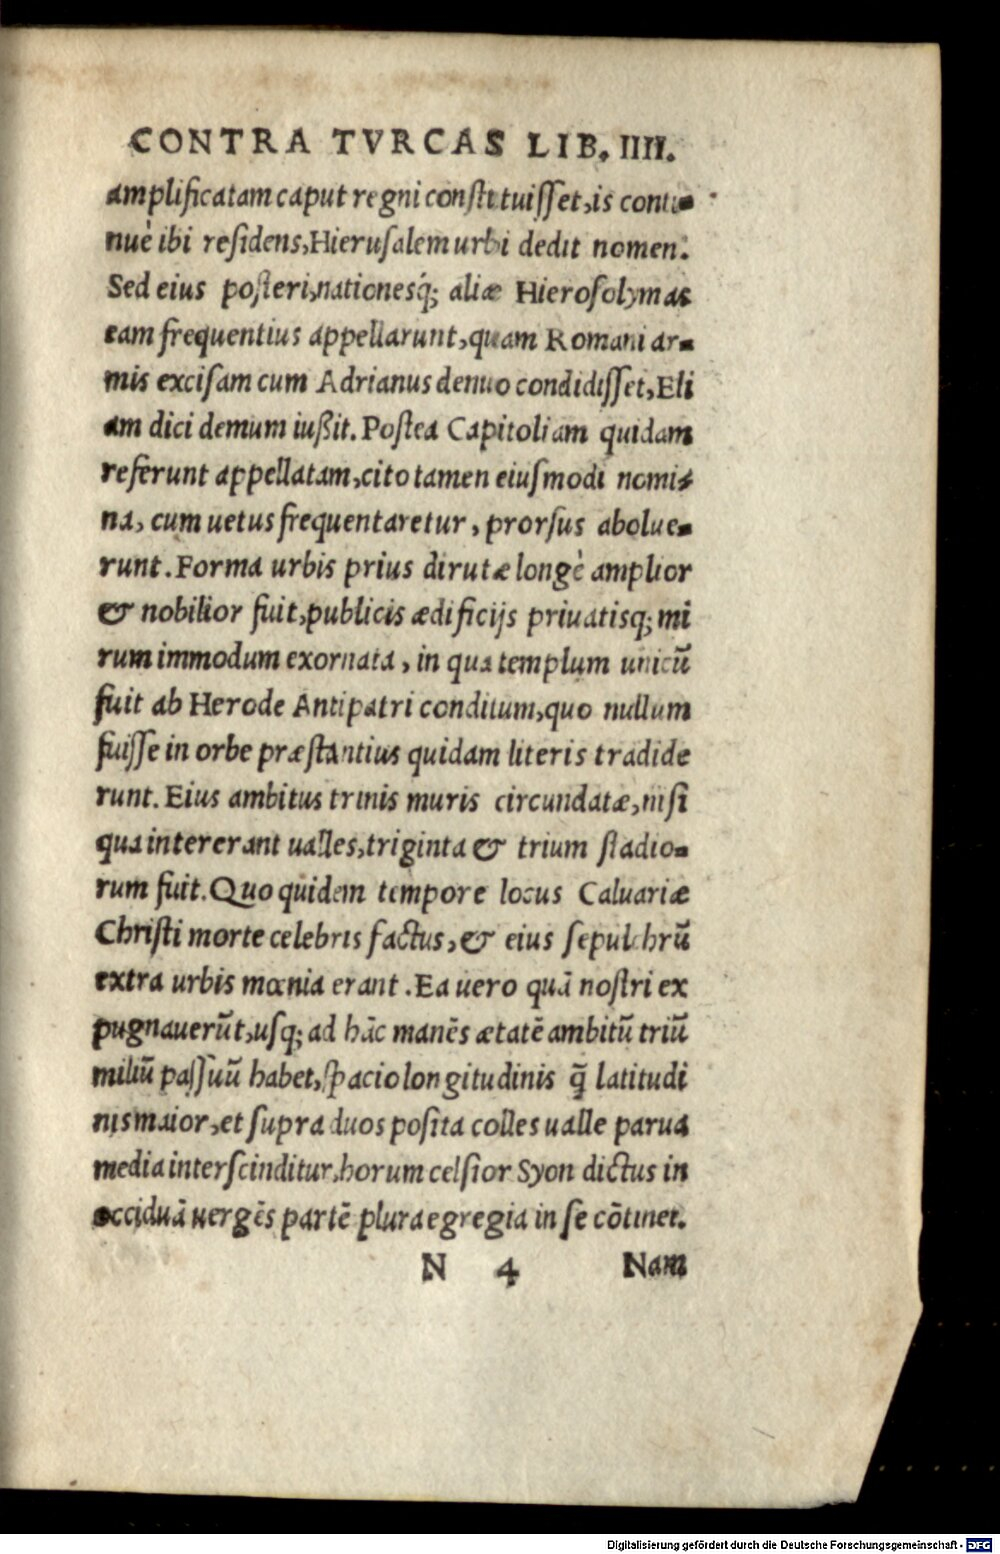 CONTRA TVRCAS LIB. IIII.
amplificatam caput regni constituisset, is conti-
nuè ibi residens, Hierusalem urbi dedit nomen.
Sed eius posteri, nationesq́; aliæ Hierosolymas
eam frequentius appellarunt, quam Romani ar-
mis excisam cum Adrianus denuo condidisset, Eli
am dici demum iußit. Postea Capitoliam quidam
referunt appellatam, cito tamen eiusmodi nomi-
na, cum uetus frequentaretur, prorsus abolue-
runt. Forma urbis prius dirutæ longè amplior
& nobilior fuit, publicis ædificijs priuatisq; mi
rum immodum exornata, in qua templum unicũ
fuit ab Herode Antipatri conditum, quo nullum
fuisse in orbe præstantius quidam literis tradide
runt. Eius ambitus trinis muris circundatæ, nisi
qua intererant ualles, triginta & trium stadio-
rum fuit. Quo quidem tempore locus Caluariæ
Christi morte celebris factus, & eius sepulchrũ
extra urbis mœnia erant. Ea uero quã nostri ex
pugnauerũt, usq; ad hãc manẽs ætatẽ ambitũ triũ
miliũ passuũ habet, spacio longitudinis q̃ latitudi
nis maior, et supra duos posita colles ualle parua
media interscinditur, horum celsior Syon dictus in
occiduã uergẽs partẽ plura egregia in se cõtinet.
N 4 Nam
Digitalisierung gefördert durch die Deutsche Forschungsgemeinschaft - DFG